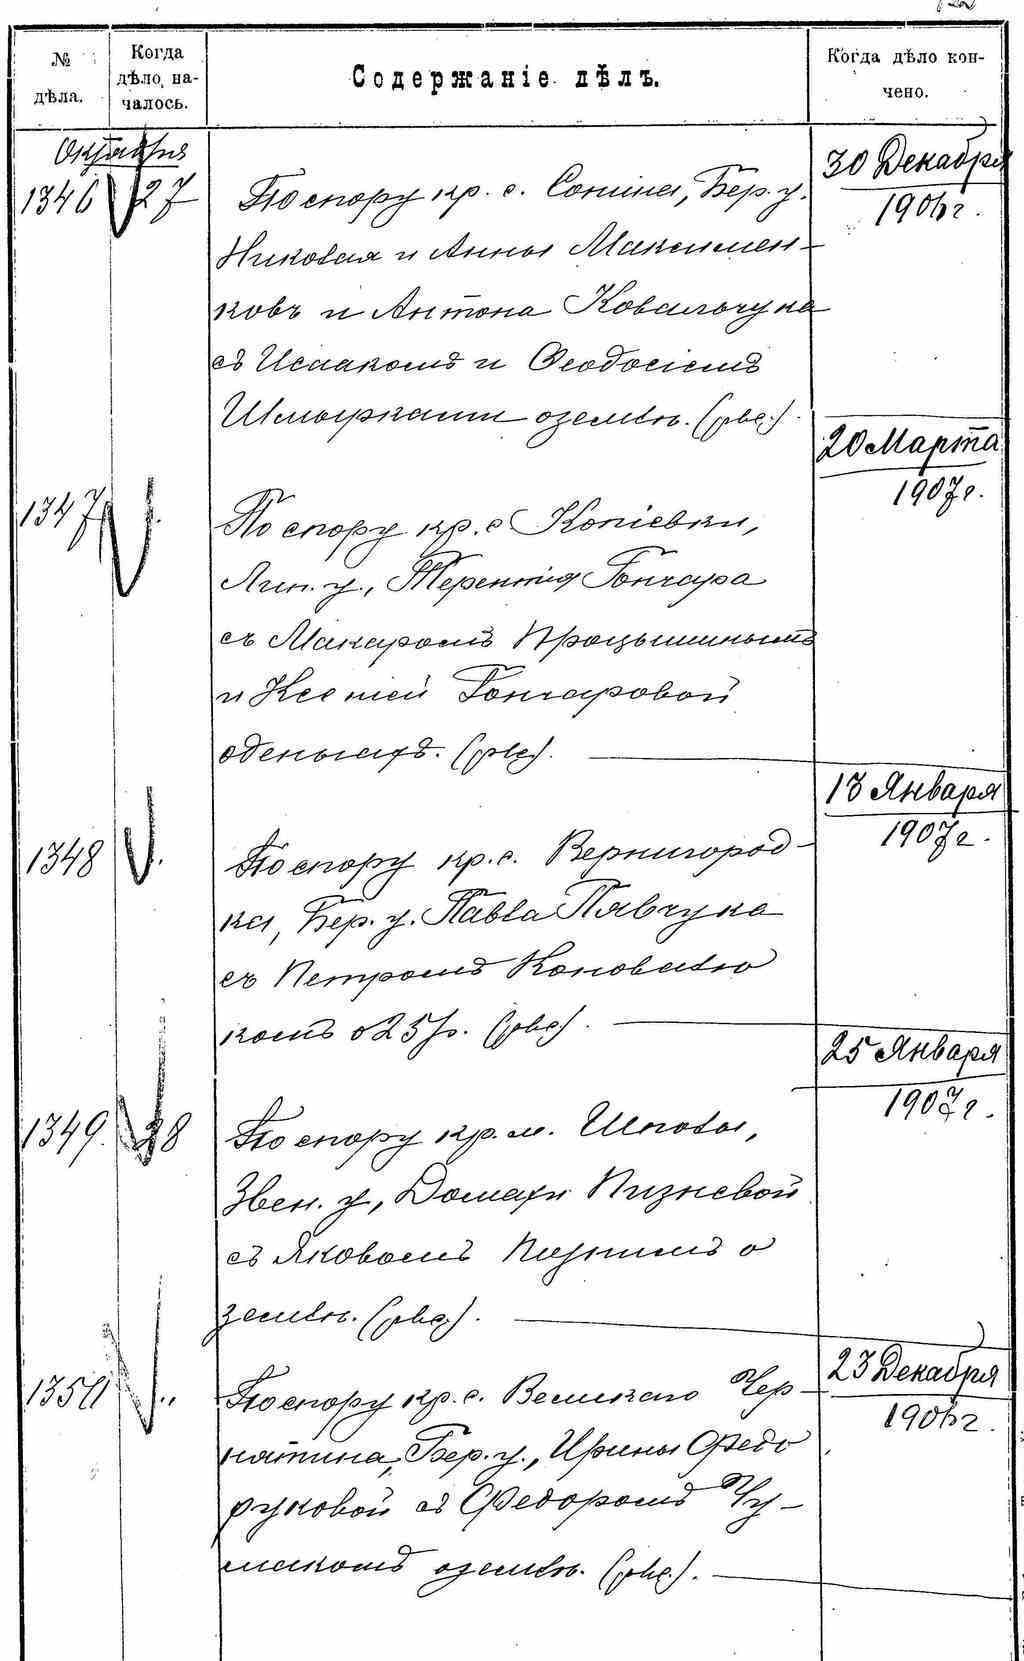 № дѣла.
Когда дѣло на-
чалось.
Содержаніе дѣлъ.
Когда дѣло кон-
чено.
Октября
1346 27 По спору кр. с. Сопина, Бер. у.
30 Декабря
1906 г.
Николая и Анны Максимен-
ковъ и Антона Ковальчука
съ Исаакомъ и Ѳеодосіемъ
Шмыркати о землѣ.
20 Марта
1907 г.
1347 По спору кр. с. Копіевки,
Лип. у., Терентія Гончара
съ Макаромъ Процышинымъ
и Ксеніей Гончаровой
о деньгахъ.
13 Января
1907 г.
1348 По спору кр. с. Вернигород-
ка, Бер. у. Павла Пявчука
съ Петромъ Коновалю
комъ о 25 р.
25 Января
1907 г.
1349. 28 По спору кр. м. Шполы,
Звен. у., Домахи Пизневой
съ Яковомъ Пизнимъ о
землѣ.
23 Декабря
1906 г.
1350 „ По спору кр. с. Великаго Чер-
нятина, Бер. у., Ирины Федо
руковой съ Федоромъ Чу-
макомъ о землѣ.